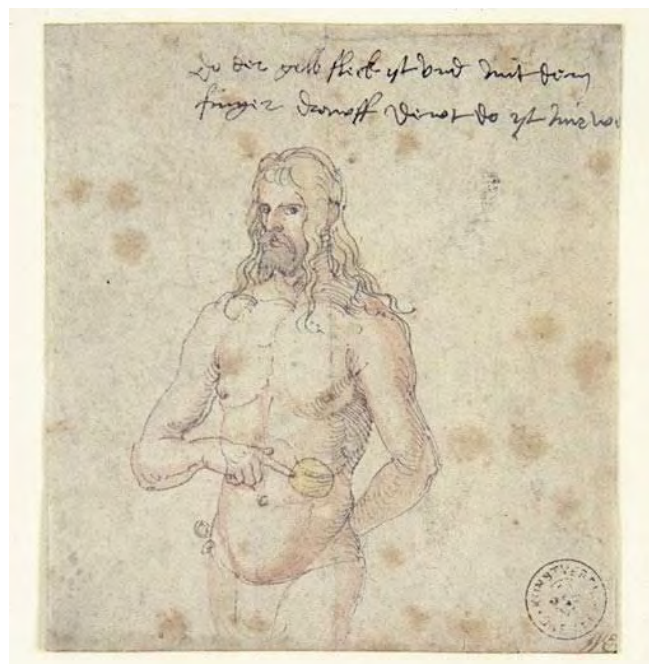 Do der gelb fleck ist und mit dem
finger drawff dewt do ist mir we
KUNSTVEREI